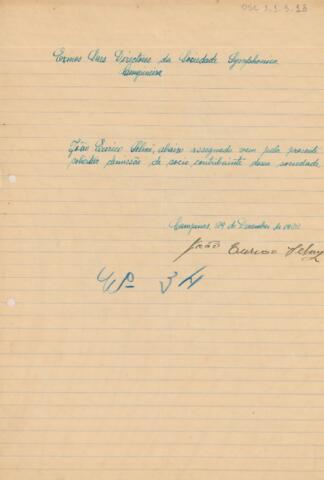 OSC 1.1.5.18
Exmos Snrs Directores da Sociedade Symphonica
Campineira
João Eurico, abaixo assegnado vem pela presente
demissão de socio contribuinte dessa sociedade
Campinas, de Dezembro de
João Eurico
Nº 34